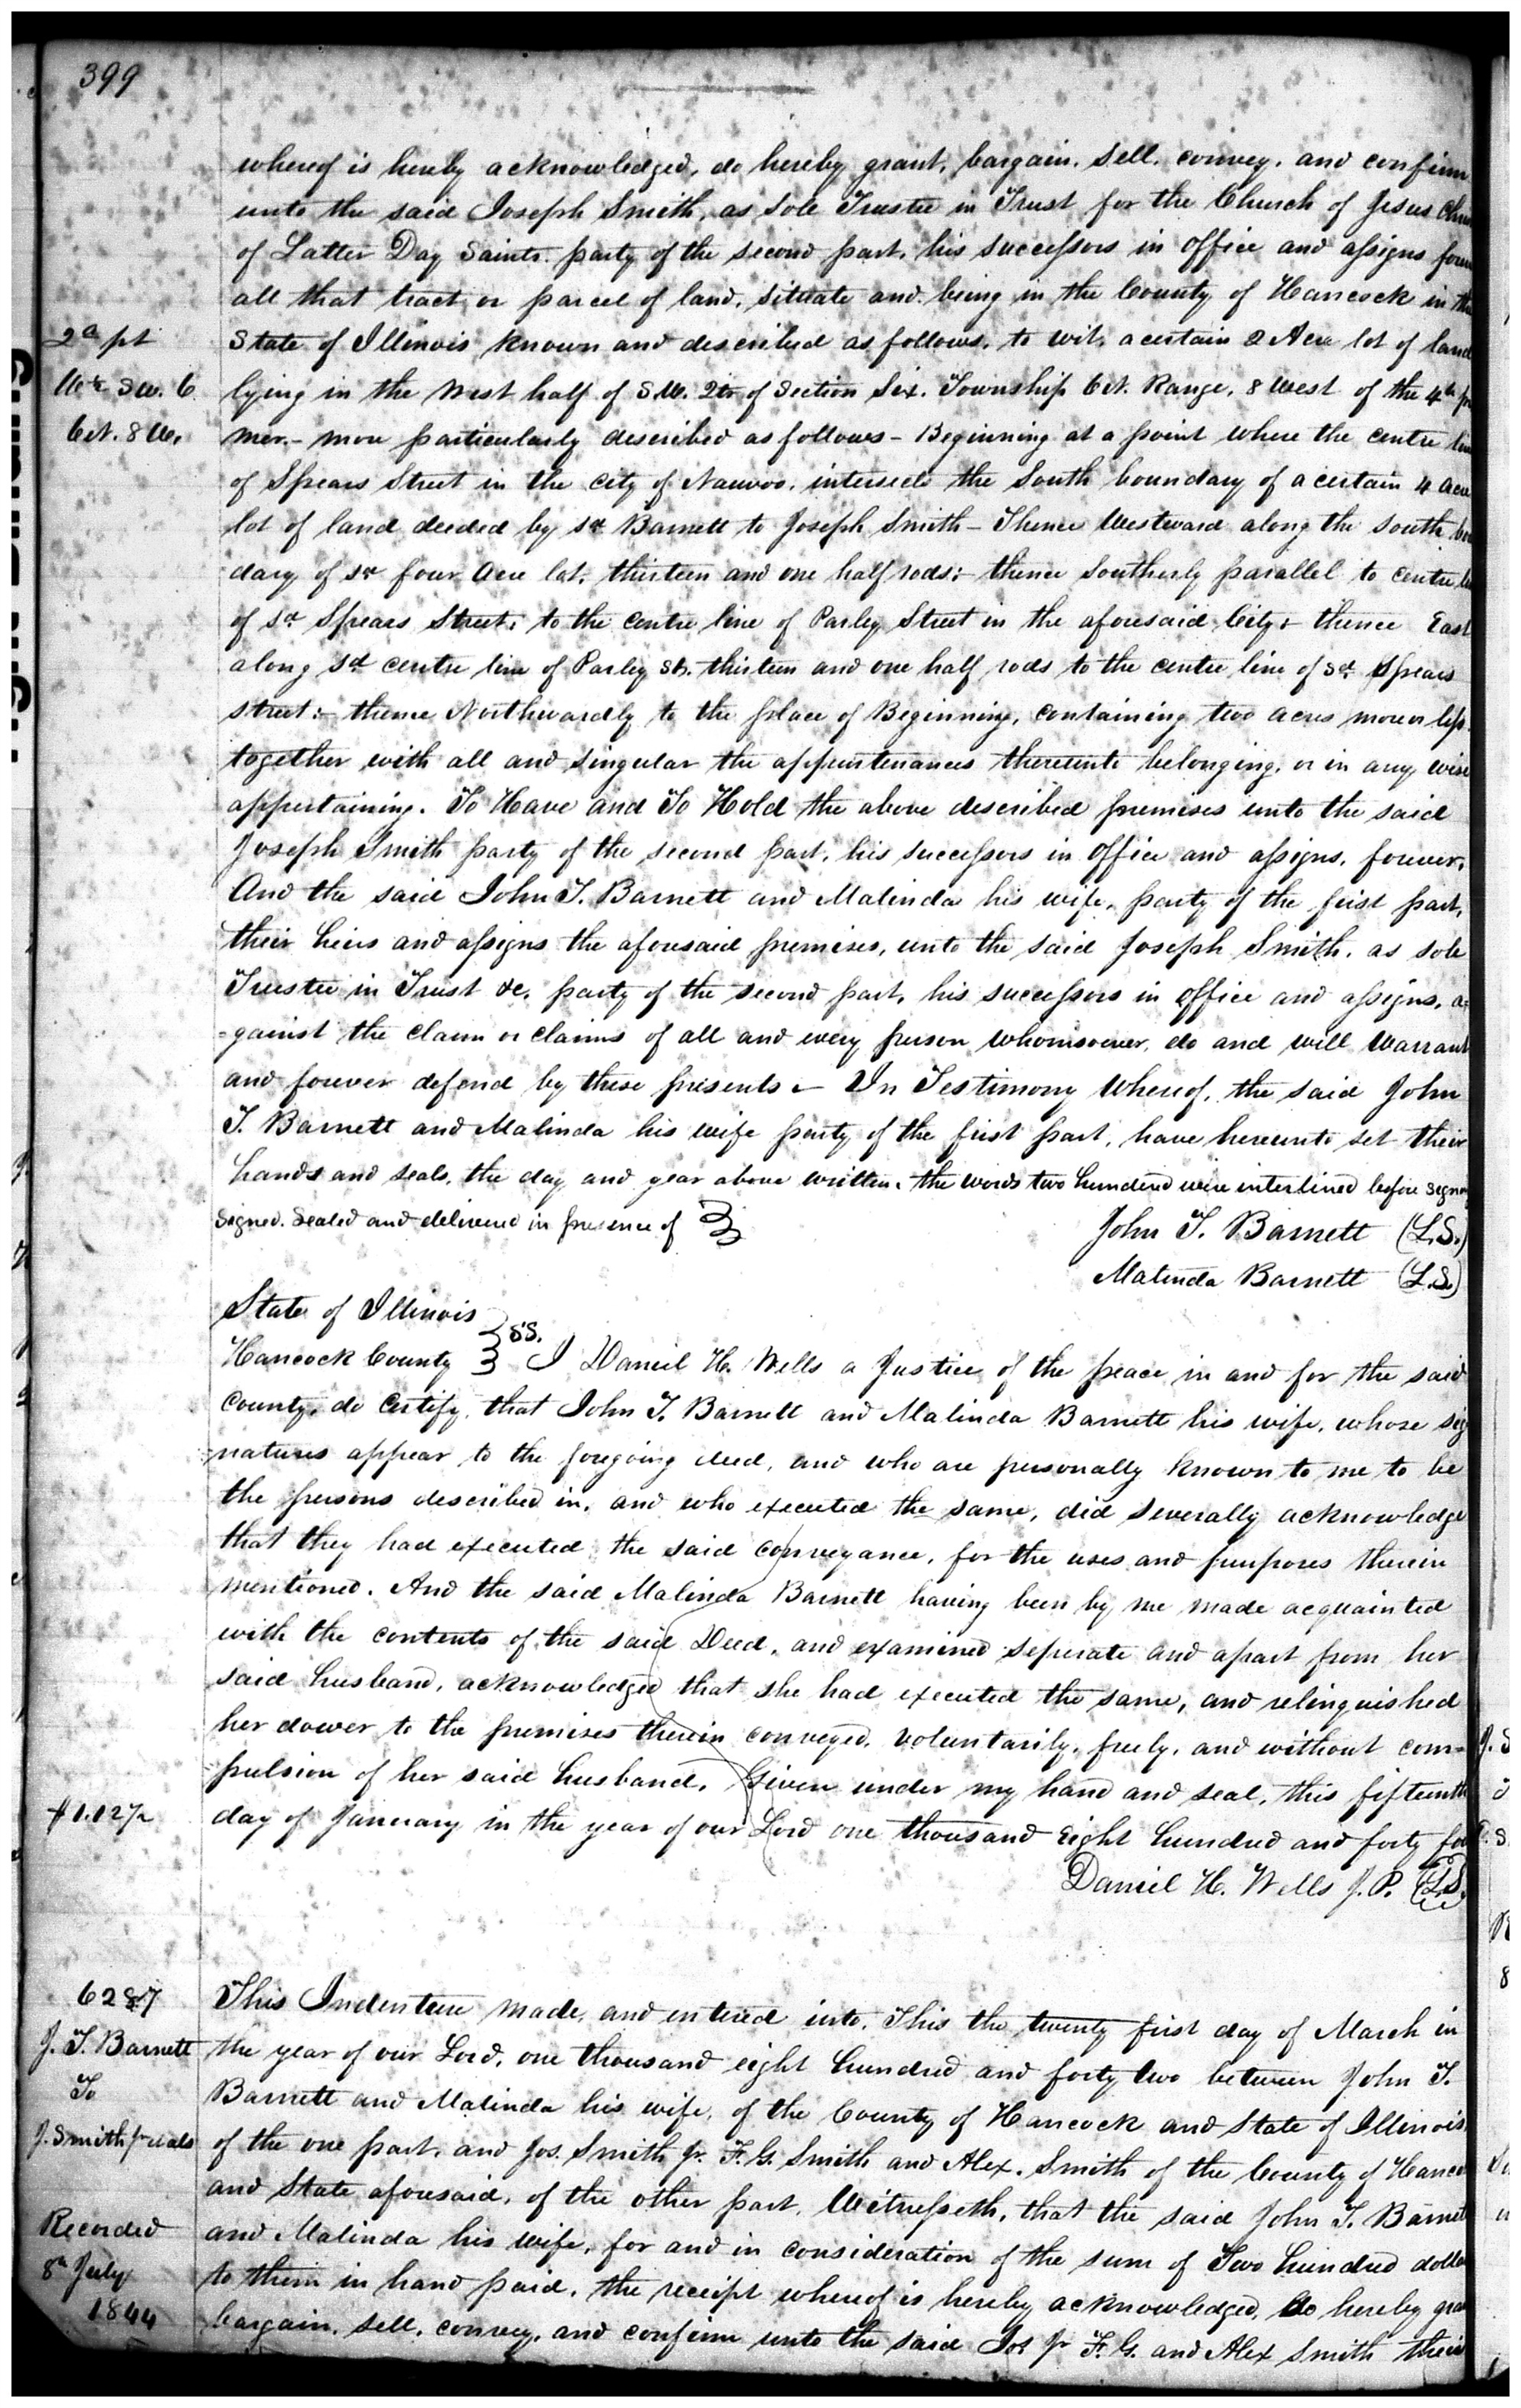 399
whereof is hereby acknowledged, do hereby grant, bargain. Sell. convey. and confirm
unto the said Joseph Smith, as Sole Trustee in Trust for the Church of Jesus
of Latter Day Saints. party of the second part, his successors in office and assigns
all that tract or parcel of land, situate and being in the County of Hancock in
2a pt
State of Illinois known and described as follows, to wit, a certain 2 Acre lot of land
W½ Sw. 6.
lying in the West half of S.W. Qtr of Section Six. Township 6 N. Range, 8 West of the 4th
6 N. 8 W.
mer.- more particularly described as follows - Beginning at a point where the centre
of Spears Street in the City of Nauvoo, intersects the South boundary of a certain 4 acre
lot of land deeded by sd Barnett to Joseph Smith - Thence Westward along the south
dary of sd four Acre lot, thirteen and one half rods:- thence Southerly parallel to centre
of sd Spears Street, to the centre line of Parley Street in the aforesaid City:- thence East
along sd centre line of Parley St. thirteen and one half rods to the centre line of sd Spears
street:- thence Northwardly to the place of Beginning, containing two acres more or less.
together with all and singular the appurtenances thereunto belonging, or in any wise
appertaining. To Have and To Hold the above described premises unto the said
Joseph Smith party of the second part, his successors in office and assigns, forever,
And the said John T. Barnett and Malinda his wife, party of the first part,
their heirs and assigns the aforesaid premises, unto the said Joseph Smith, as sole
Trustee in Trust &c, party of the second part, his successors in office and assigns, a=
=gainst the claim or claims of all and every person whomsoever, do and will Warrant
and forever defend by these presents - In Testimony Whereof, the said John
T. Barnett and Malinda his wife party of the first part, have hereunto set their
hands and seals, the day and year above written. the words two hundred were interlined before
Signed. Sealed and delivered in presence of
John T. Barnett (L.S.)
Malinda Barnett (L.S.)
State of Illinois
SS.
Hancock County I Daniel H. Wells a Justice of the peace in and for the said
County, do Certify, that John T. Barnett and Malinda Barnett his wife, whose sig
natures appear to the foregoing deed, and who are personally known to me to be
the persons described in, and who executed the same, did severally acknowledge
that they had executed the said conveyance, for the uses and purposes therein
mentioned. And the said Malinda Barnett having been by me made acquainted
with the contents of the said Deed, and examined seperate and apart from her
said husband, acknowledged that she had executed the same, and relinquished
her dower to the premises therein conveyed, voluntarily, freely, and without com=
pulsion of her said husband. Given under my hand and seal, this fifteenth
$1.12½
day of January in the year of our Lord one thousand Eight hundred and forty
Daniel H. Wells J. P. (L.S.)
6287
This Indenture made, and entered into, This the twenty first day of March in
J. T. Barnett
the year of our Lord, one thousand eight hundred and forty two between John T.
To
Barnett and Malinda his wife, of the County of Hancock and State of Illinois
J. Smith Jr et als
of the one part, and Jos. Smith Jr. F. G. Smith and Alex. Smith of the County of
and State aforesaid, of the other part, Witnesseth, that the said John T. Barnett
Recorded
and Malinda his wife, for and in consideration of the sum of Two hundred
8th July
to them in hand paid, the receipt whereof is hereby acknowledged, do hereby
1844
bargain. sell, convey, and confirm unto the said Jos Jr F. G. and Alex Smith their